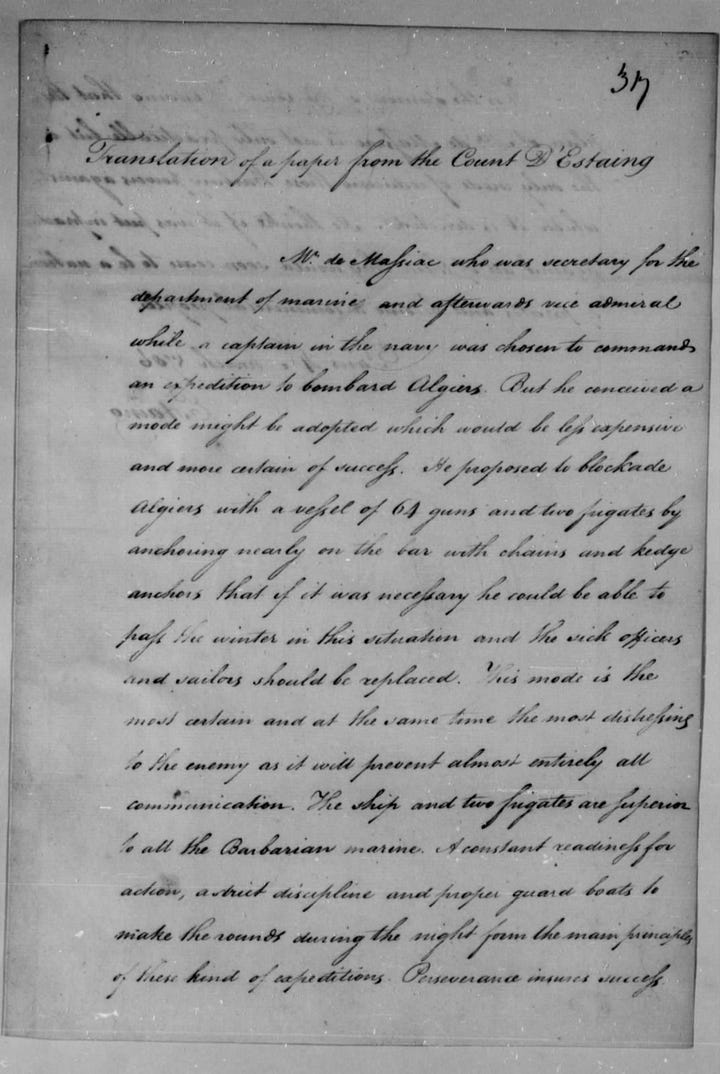 37
Translation of a paper from the Count D'Estaing
Mr. de Massiac who was secretary for the
department of marine and afterwards vice admiral
while a captain in the navy was chosen to command
an expedition to bombard Algiers. But he conceived a
mode might be adopted which would be less expensive
and more certain of success. He proposed to blockade
Algiers with a vessel of 64 guns and two frigates by
anchoring nearly on the bar with chains and kedge
anchors that if it was necessary he could be able to
pass the winter in this situation and the sick officers
and sailors should be replaced. This mode is the
most certain and at the same time the most distressing
to the enemy as it will prevent almost entirely all
communication. The ship and two frigates are superior
to all the Barbarian marine. A constant readiness for
action, a strict discipline and proper guard boats to
make the rounds during the night form the main principles
of these kind of expeditions. Perseverance insures success